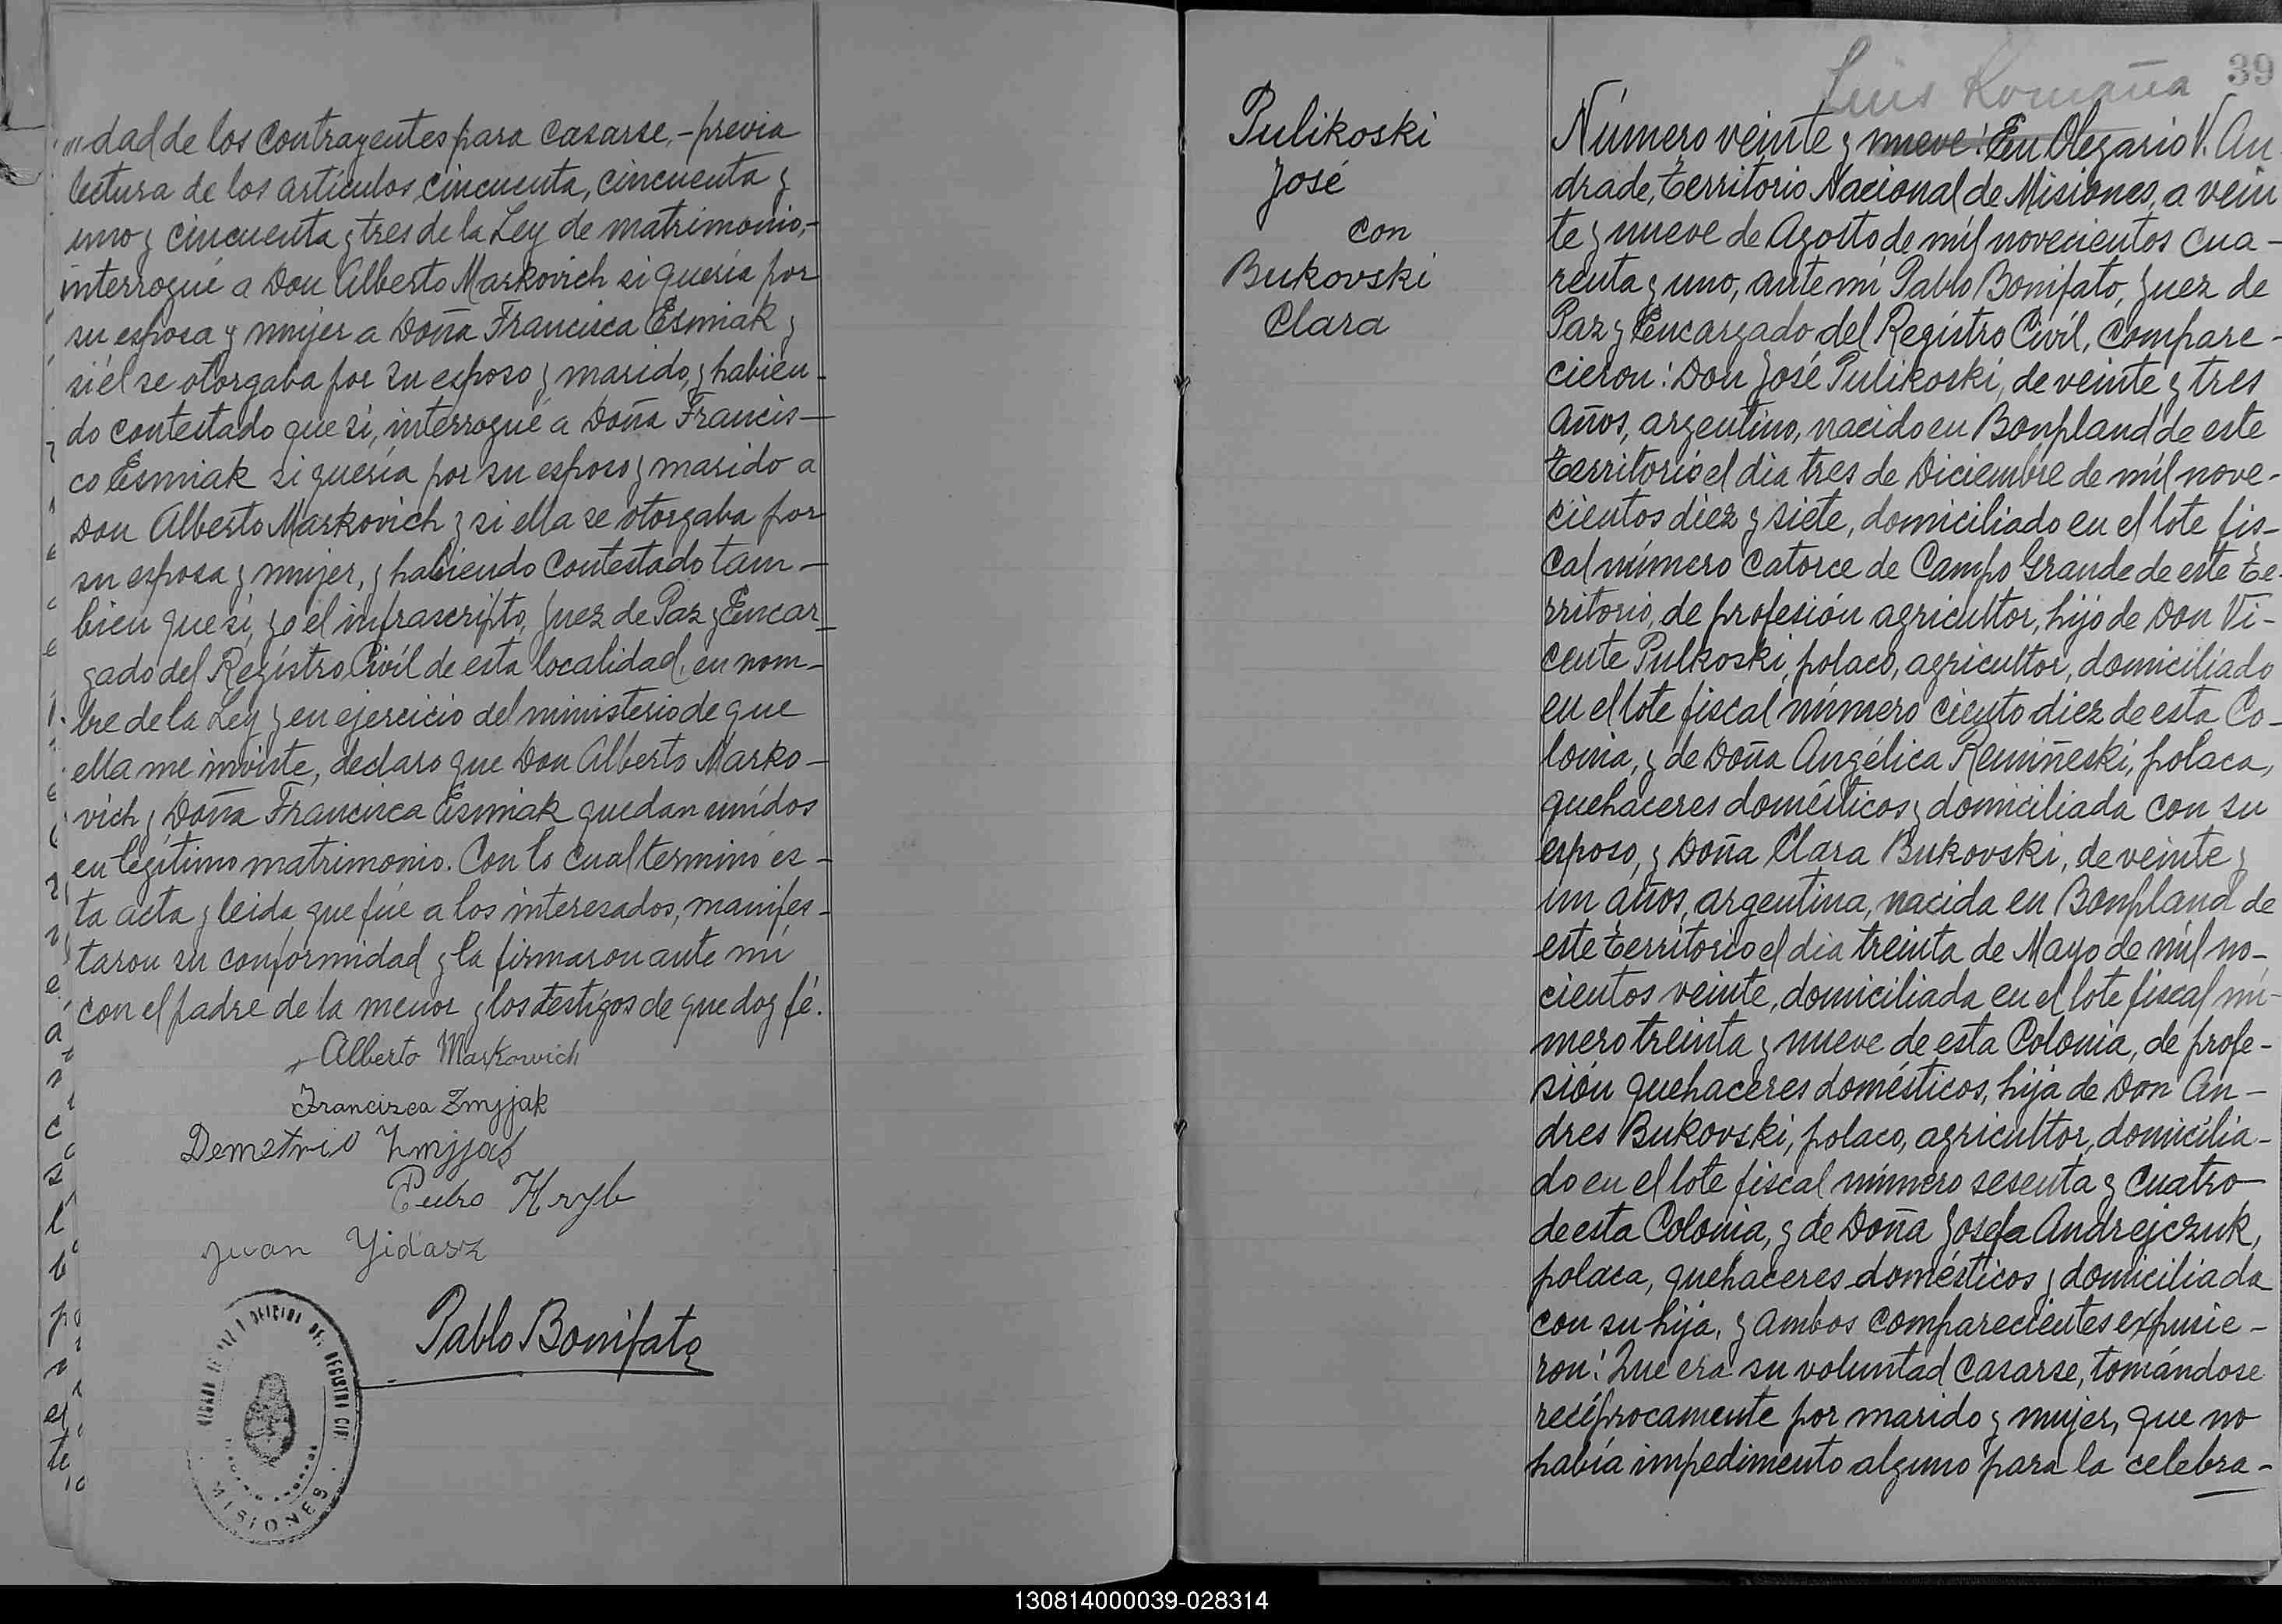 dad de los contrayentes para casarse, - previa
lectura de los artículos cincuenta, cincuenta y
uno y cincuenta y tres de la Ley de matrimonio,-
interrogué a Don Alberto Markovich si quería por
su esposa y mujer a Doña Francisca Esmiak y
si él se otorgaba por su esposo y marido, y habien-
do contestado que si, interrogué a Doña Francis-
co Esmiak si quería por su esposo y marido a
Don Alberto Markovich y si ella se otorgaba por
su esposa y mujer, y habiendo contestado tam-
bien que si, yo el infrascripto, Juez de Paz y Encar-
gado del Registro Civil de esta localidad, en nom-
bre de la Ley y en ejercicio del ministerio de que
ella me inviste, declaro que Don Alberto Marko-
vich y Doña Francisca Esmiak quedan unidos
en legítimo matrimonio. Con lo cual terminó es-
ta acta y leida que fué a los interesados, manifes-
taron su conformidad y la firmaron ante mi
con el padre de la menor y los testigos de que doy fé.
Alberto Markowich
Francisca Zmyjak
Demetrio
Pedro Kryb
Juan
Pablo Bonifato
OFICINA DEL REGISTRO CIVIL
MISIONES
Luis Romaña
39
Pulikoski
José
con
Bukovski
Clara
Número veinte y nueve: En Olegario V. An
drade, territorio Nacional de Misiones, a vein
te y nueve de Agosto de mil novecientos cua-
renta y uno, ante mi Pablo Bonifato, Juez de
Paz y Encargado del Registro Civil, compare-
cieron: Don José Pulikoski, de veinte y tres
años, argentino, nacido en Bonpland de este
territorio el dia tres de Diciembre de mil nove-
cientos diez y siete, domiciliado en el lote fis-
cal número catorce de Campo Grande de este te-
rritorio, de profesión agricultor, hijo de Don Vi-
cente Pulkoski, polaco, agricultor, domiciliado
en el lote fiscal número ciento diez de esta Co-
lonia, y de Doña Angélica Remiñeski, polaca,
quehaceres domésticos y domiciliada con su
esposo, y Doña Clara Bukovski, de veinte y
un años, argentina, nacida en Bonpland de
este territorio el dia treinta de Mayo de mil no-
cientos veinte, domiciliada en el lote fiscal nú-
mero treinta y nueve de esta Colonia, de profe-
sión quehaceres domésticos, hija de Don An-
dres Bukovski, polaco, agricultor, domicilia-
do en el lote fiscal número sesenta y cuatro
de esta Colonia, y de Doña Josefa Andrejczuk,
polaca, quehaceres domésticos y domiciliada
con su hija, y ambos comparecientes expusie-
ron: Que era su voluntad casarse, tomándose
recíprocamente por marido y mujer, que no
había impedimento alguno para la celebra-
130814000039-028314